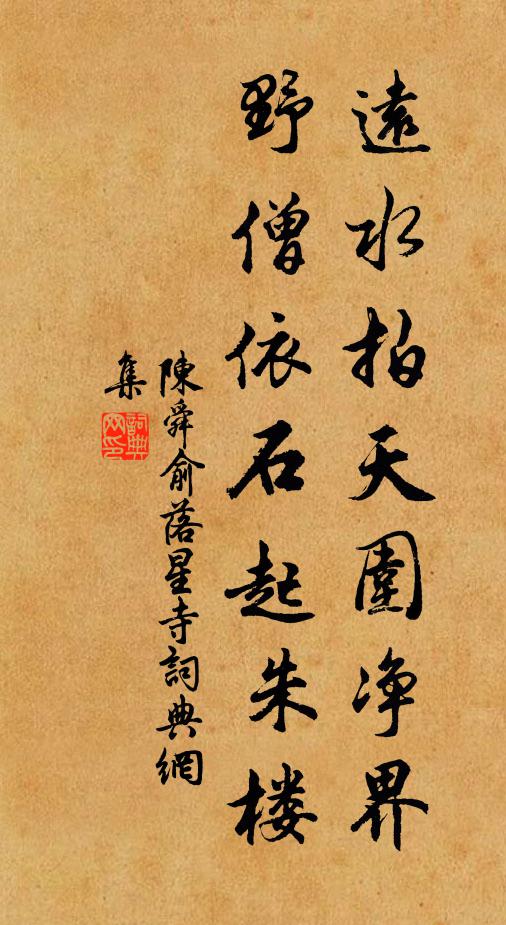 遠水拍天圍净界
野僧依石起朱楼
陳舜俞落星寺詞典網
集
詞典
网印